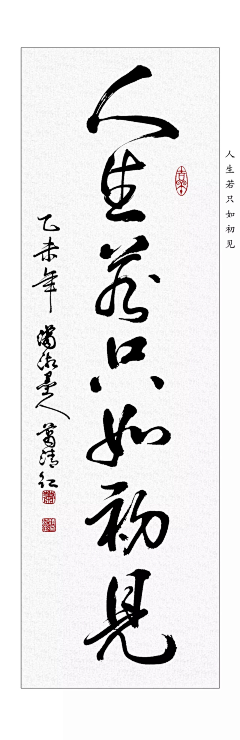 人生若只如初見
人生若只如初見
乙未年